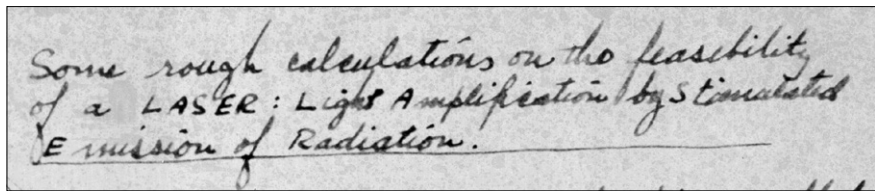 Some rough calculations on the feasibility
of a LASER : Light Amplification by Stimulated
Emission of Radiation.